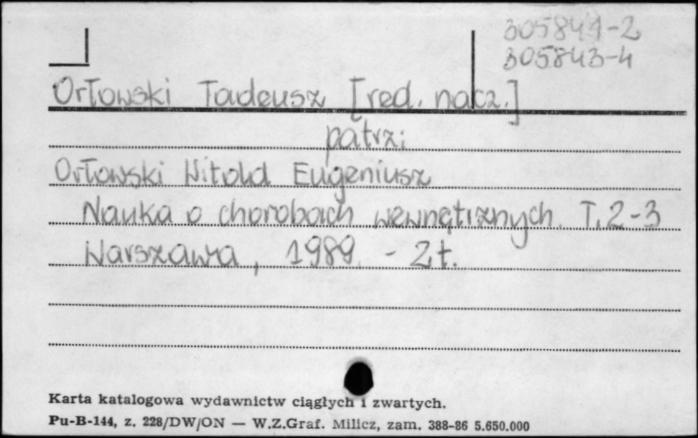 305841-2
305843-4
Orłowski Tadeusz [red. nacz.]
patrz:
Orłowski Witold Eugeniusz
Nauka o chorobach wewnętrznych. T. 2-3
Warszawa, 1989. - 2 t.
Karta katalogowa wydawnictw ciągłych i zwartych.
Pu-B-144, z. 228/DW/ON — W.Z.Graf. Milicz, zam. 388-86 5.650.000